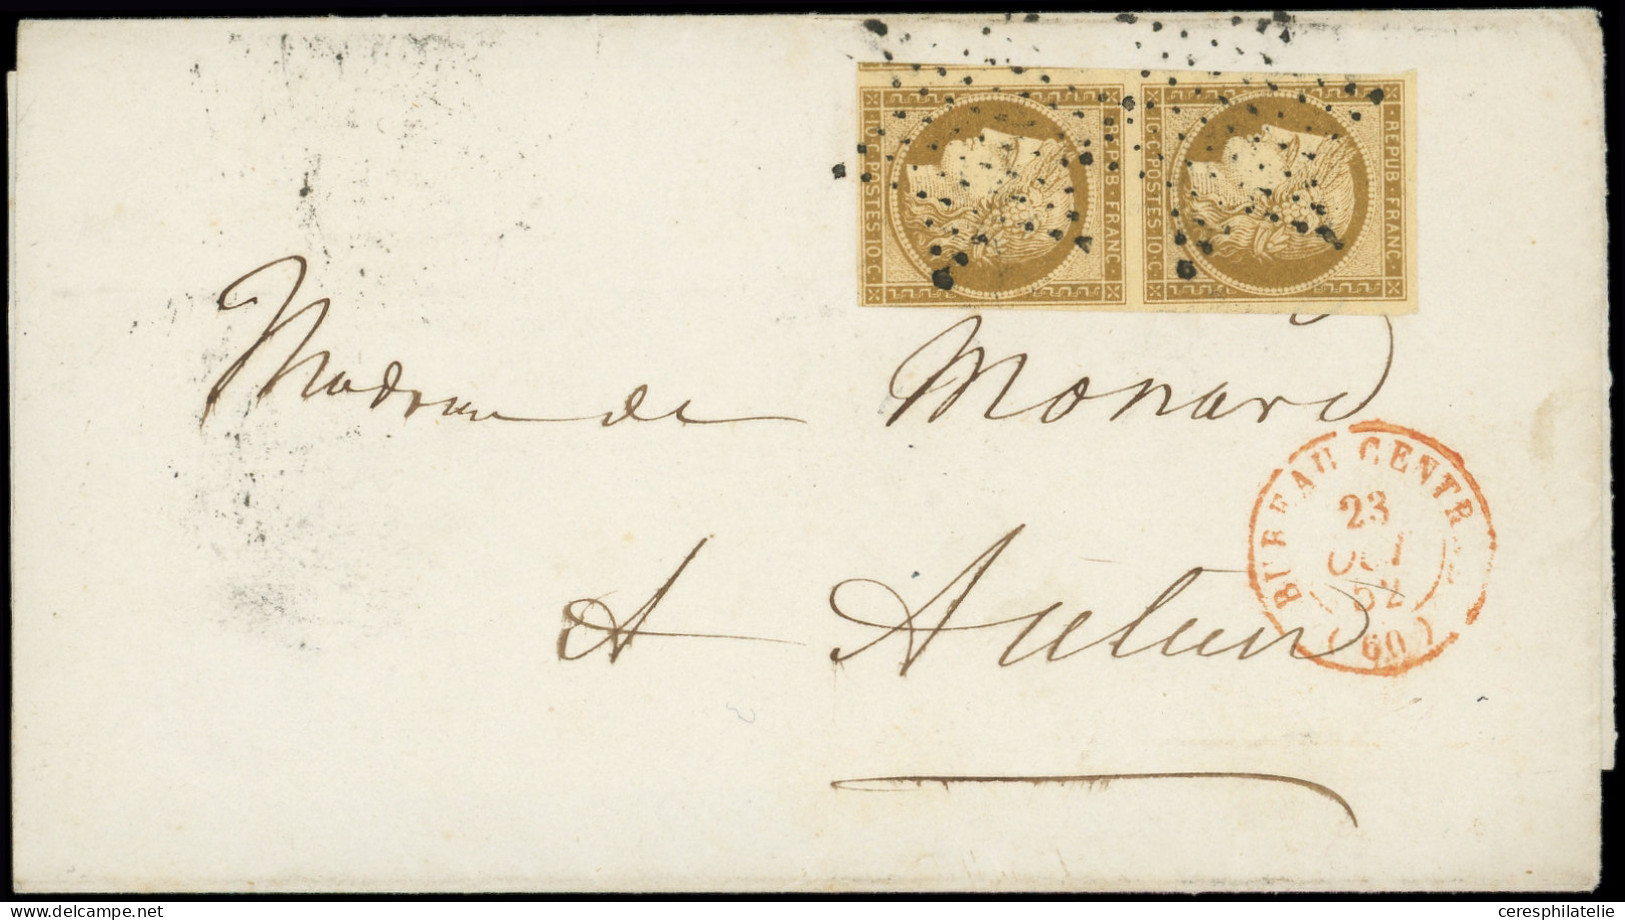 REPUB · FRANC ·
10 · C · POSTES 10 · C
REPUB · FRANC ·
10 · C · POSTES 10 · C
Madame de Monard
BUREAU CENTR
23
OCT
52
(60)
A Autun
www.delcampe.net
ceresphilatelie